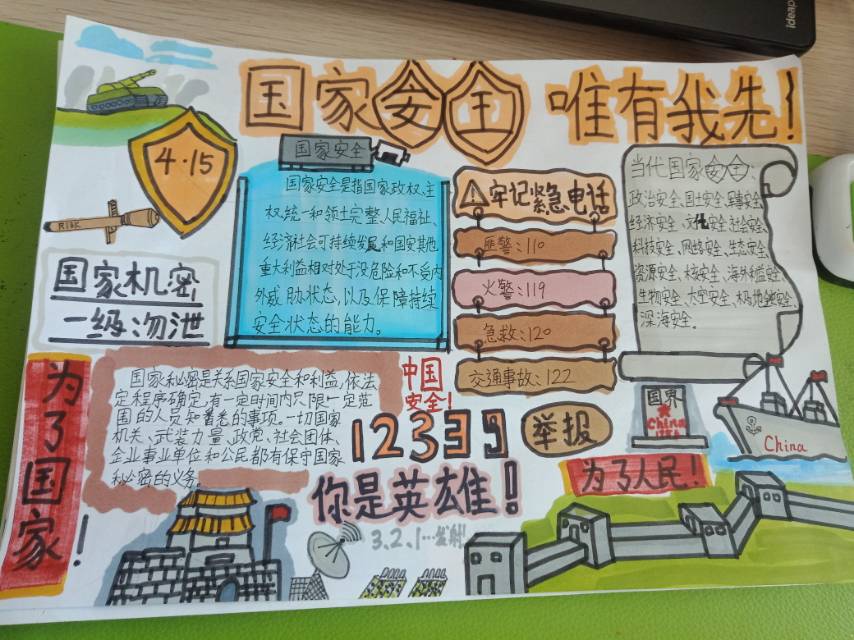 ideap
国家安全 唯有我先!
4·15
RISK
国家机密
一级勿泄
国家安全
国家安全是指国家政权、主
权、统一和领土完整、人民福祉、
经济社会可持续发展和国安其他
重大利益相对处于没危险和不受内
外威胁状态,以及保障持续
安全状态的能力。
牢记紧急电话
匪警:110
火警:119
急救:120
交通事故:122
当代国家安全:
政治安全、国土安全、军事安全、
经济安全、文化安全、社会安全、
科技安全、网络安全、生态安全、
资源安全、核安全、海外利益安全、
生物安全、太空安全、极地安全、
深海安全。
为了国家!
国家秘密是关系国家安全和利益,依法
定程序确定,有一定时间内只限一定范
围的人员知番悉的事项。一切国家
机关、武装力量、政党、社会团体、
企业事业单位和公民都有保守国家
秘密的义务。
中国
安全!
12339
举报
你是英雄!
3、2、1…发射!
国界
China
China
为了人民!